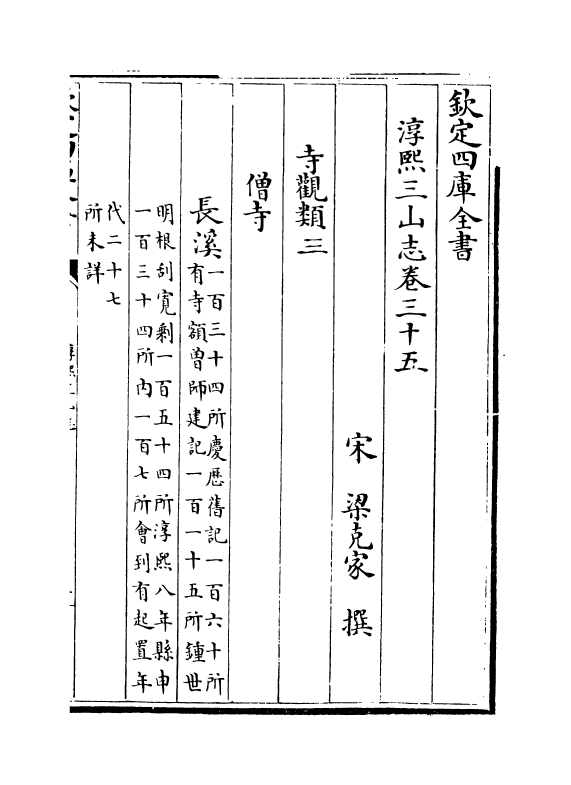 欽定四庫全書
淳熙三山志卷三十五
宋 梁克家 撰
寺觀類三
僧寺
長溪
一百三十四所慶歴舊記一百六十所
有寺額曽師建記一百一十五所鍾世
明根刮寛剩一百五十四所淳熙八年縣申
一百三十四所内一百七所會到有起置年
代二十七
所未詳